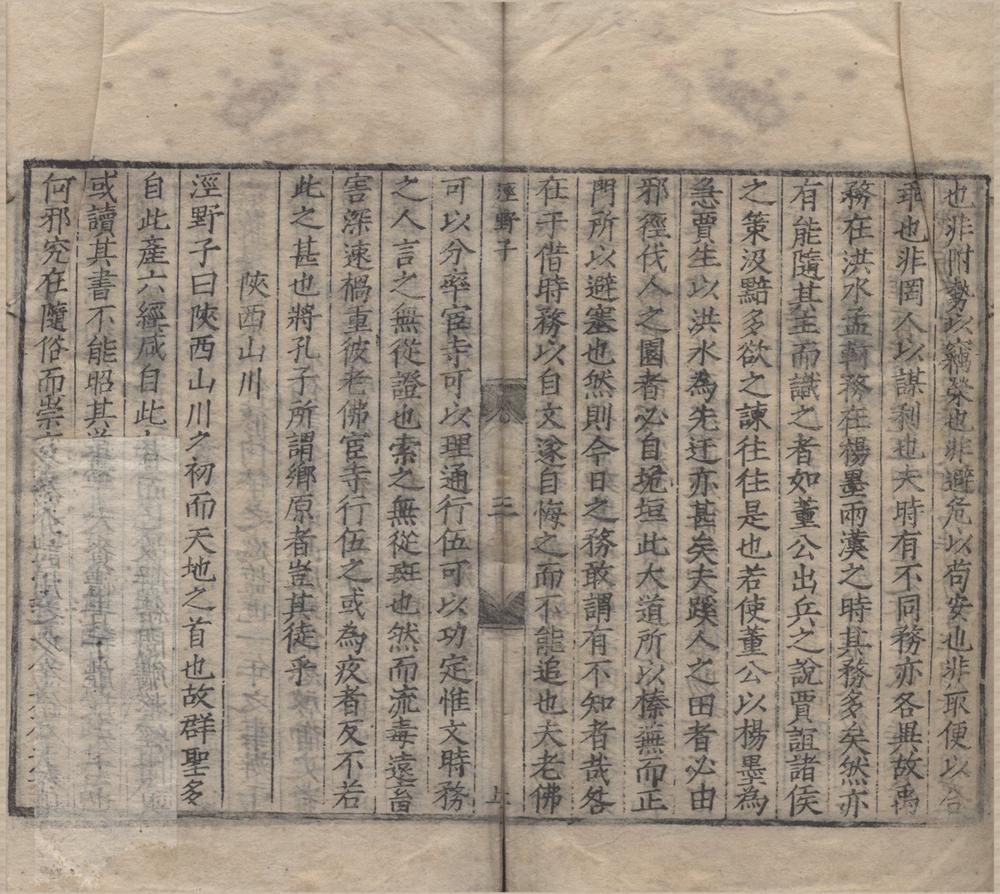 也非附勢以竊發也非避危以苟安也非取便以合
乖也非罔人以謀利也夫時有不同務亦各異故禹
務在洪水孟軻務在楊墨兩漢之時其務多矣然亦
有能隨其主而識之者如董公出兵之說賈誼諸侯
之策汲黯多欲之諫往往是也若使董公以楊墨為
急賈生以洪水為先迂亦甚矣夫蹊人之田者必由
邪徑伐人之園者必自垝垣此大道所以榛蕪而正
門所以避塞也然則今日之務敢謂有不知者哉咎
在于借時務以自文遂自悔之而不能追也夫老佛
涇野子
三
上
可以分率宦寺可以理通行伍可以功定惟文時務
之人言之無從證也索之無從斑也然而流毒遠
害深速禍重彼老佛宦寺行伍之或為疚者反不若
此之甚也將孔子所謂鄉原者豈其徒乎
陝西山川
涇野子曰陝西山川之初而天地之首也故群聖多
自此產六經咸自此
或讀其書不能昭其
何邪究在隨俗而崇